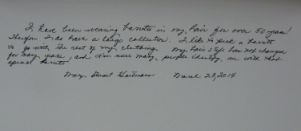 I have been wearing barrettes in my hair for over 50 years
Therefore I do have a large collection. I like to pick a barrette
to go with the rest of my clothing. My hair style has not changed
for many years, and I'm sure many people identify me with that
special barrette.
Mary Stuart
March 23, 2014